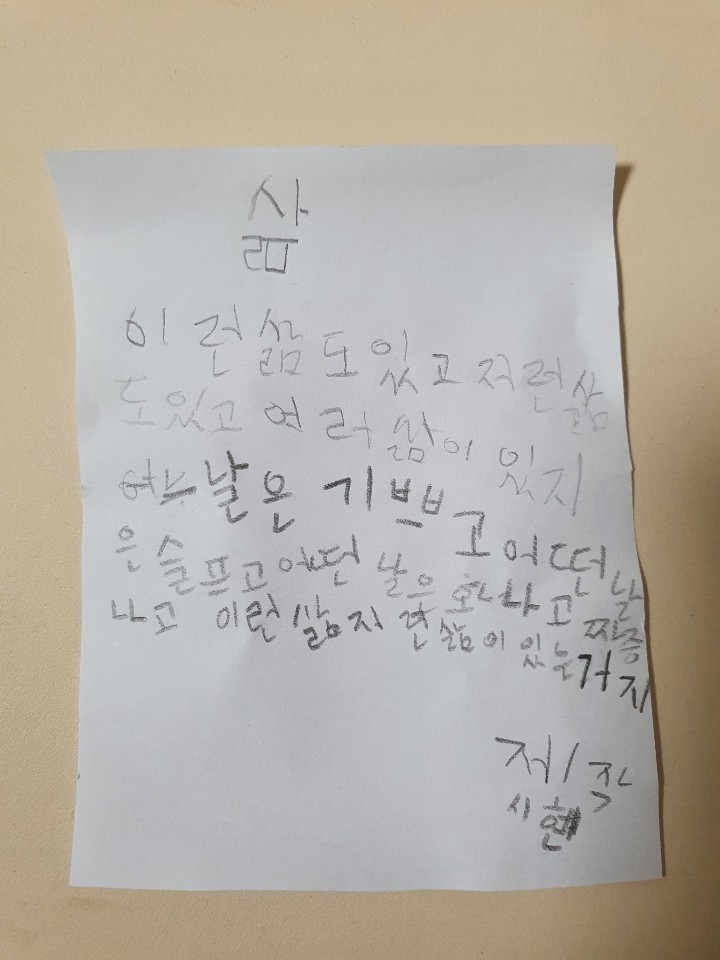 삶
이런삶도있고 저런삶
도있고 여러삶이 있지
어느날은 기쁘고 어떤날
은 슬프고 어떤 날은 화나고 짜증
나고 이런삶 저런삶이 있는거지
저/작
시현